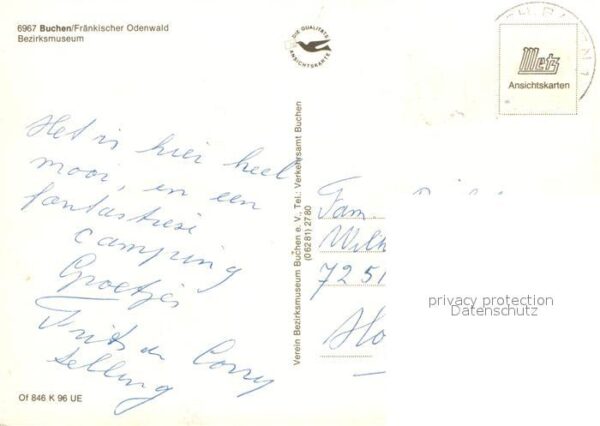 6967 Buchen/Fränkischer Odenwald
Bezirksmuseum
DIE QUALITÄTS ANSICHTSKARTE
Metz
Ansichtskarten
Het is hier heel
mooi, en een
fantastiese
camping
Groetjes
Frits en Corry
Selling
Verein Bezirksmuseum Buchen e. V., Tel.: Verkehrsamt Buchen
(06281) 2780
Fam.
Wilh
7251
Ho
privacy protection
Datenschutz
Of 846 K 96 UE